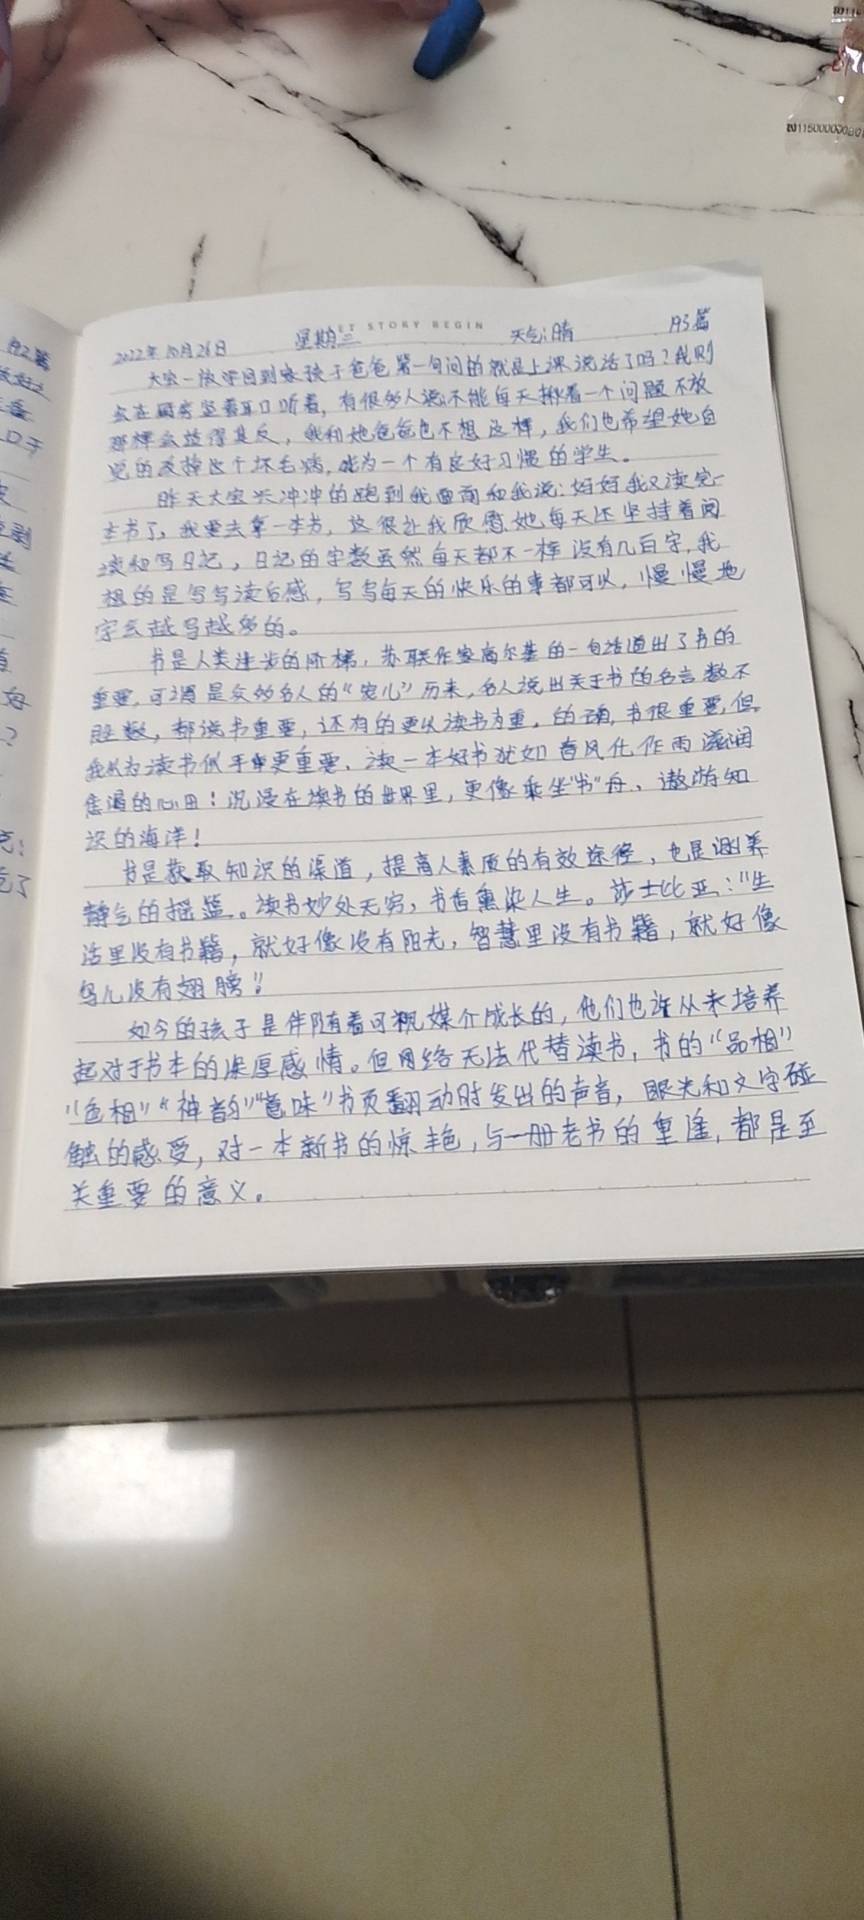 2022年10月26日 星期三 天气:晴 193篇
LET STORY BEGIN
大宝一放学回到家孩子爸爸第一句问的就是上课说话了吗?我则
会在厨房竖着耳口听着,有很多人说:不能每天揪着一个问题不放
那样会适得其反,我和她爸爸也不想这样,我们也希望她自
觉的改掉这个坏毛病,成为一个有良好习惯的学生。
昨天大宝兴冲冲的跑到我面前和我说:妈妈我又读完一
本书了,我要去拿一本书,这很让我欣慰她每天还坚持着阅
读和写日记,日记的字数虽然每天都不一样没有几百字,我
想的是写写读后感,写写每天的快乐的事都可以,慢慢地
字会越写越多的。
书是人类进步的阶梯,苏联作家高尔基的一句话道出了书的
重要,可谓是众多名人的“宠儿”历来,名人说出关于书的名言数不
胜数,都说书重要,还有的更以读书为重,的确,书很重要,但
我认为读书似乎更重要、读一本好书犹如春风化作雨滋润
焦渴的心田!沉浸在读书的世界里,更像乘坐“书”舟、遨游知
识的海洋!
书是获取知识的渠道,提高人素质的有效途径,也是涵养
静气的摇篮。读书妙处无穷,书香熏染人生。莎士比亚:“生
活里没有书籍,就好像没有阳光,智慧里没有书籍,就好像
鸟儿没有翅膀”!
如今的孩子是伴随着可视媒介成长的,他们也许从未培养
起对于书本的深厚感情。但网络无法代替读书,书的“品相”
“色相”“神韵”“意味”书页翻动时发出的声音,眼光和文字碰
触的感受,对一本新书的惊艳,与一册老书的重逢,都是至
关重要的意义。
192篇
口于
达
到
?
了
8011500000801